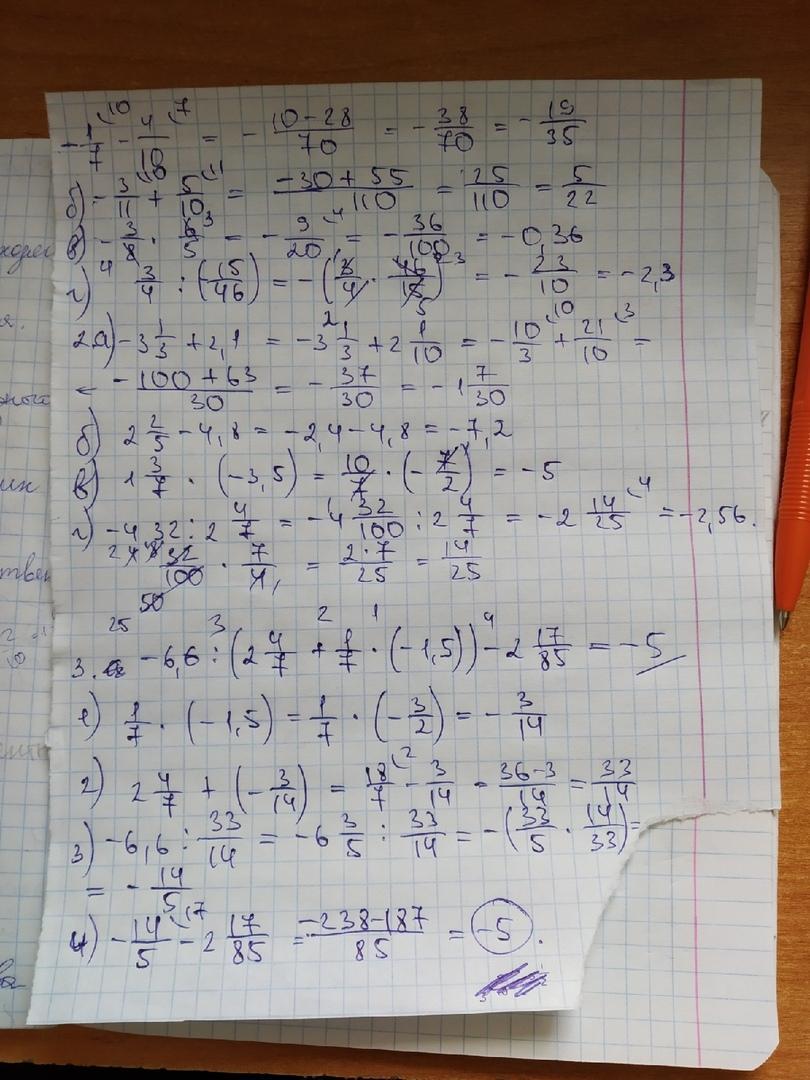 -1/7 - 4/10 = - 10-28/70 = - 38/70 = - 19/35
б) - 3/11 + 5/10 = -30+55/110 = 25/110 = 5/22
в) - 3/8 · 6/5 = - 9/20 = - 36/100 = -0,36
г) 3/4 : (-15/46) = -(3/4 · 46/15) = - 23/10 = -2,3
2а) -3 1/3 + 2,1 = -3 1/3 + 2 1/10 = - 10/3 + 21/10 =
-100+63/30 = - 37/30 = -1 7/30
б) 2 2/5 - 4,8 = -2,4 - 4,8 = -7,2
в) 1 3/7 · (-3,5) = 10/7 · (- 7/2) = -5
г) -4,32 : 2 4/7 = -4 32/100 : 2 4/7 = -2 14/25 = -2,56.
32/100 · 7/4 = 2·7/25 = 14/25
3. -6,6 : (2 4/7 + 1/7 · (-1,5)) - 2 17/85 = -5
1) 1/7 · (-1,5) = 1/7 · (- 3/2) = - 3/14
2) 2 4/7 + (- 3/14) = 18/7 - 3/14 = 36-3/14 = 33/14
3) -6,6 : 33/14 = -6 3/5 : 33/14 = -(33/5 · 14/33) =
= - 14/5
4) - 14/5 - 2 17/85 = -238-187/85 = -5.